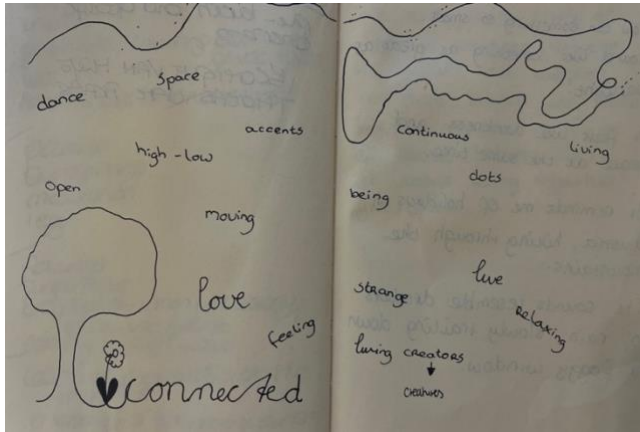 space
dance
accents
high-low
open
moving
love
feeling
connected
continuous
living
dots
being
live
strange
relaxing
living creators
creatures